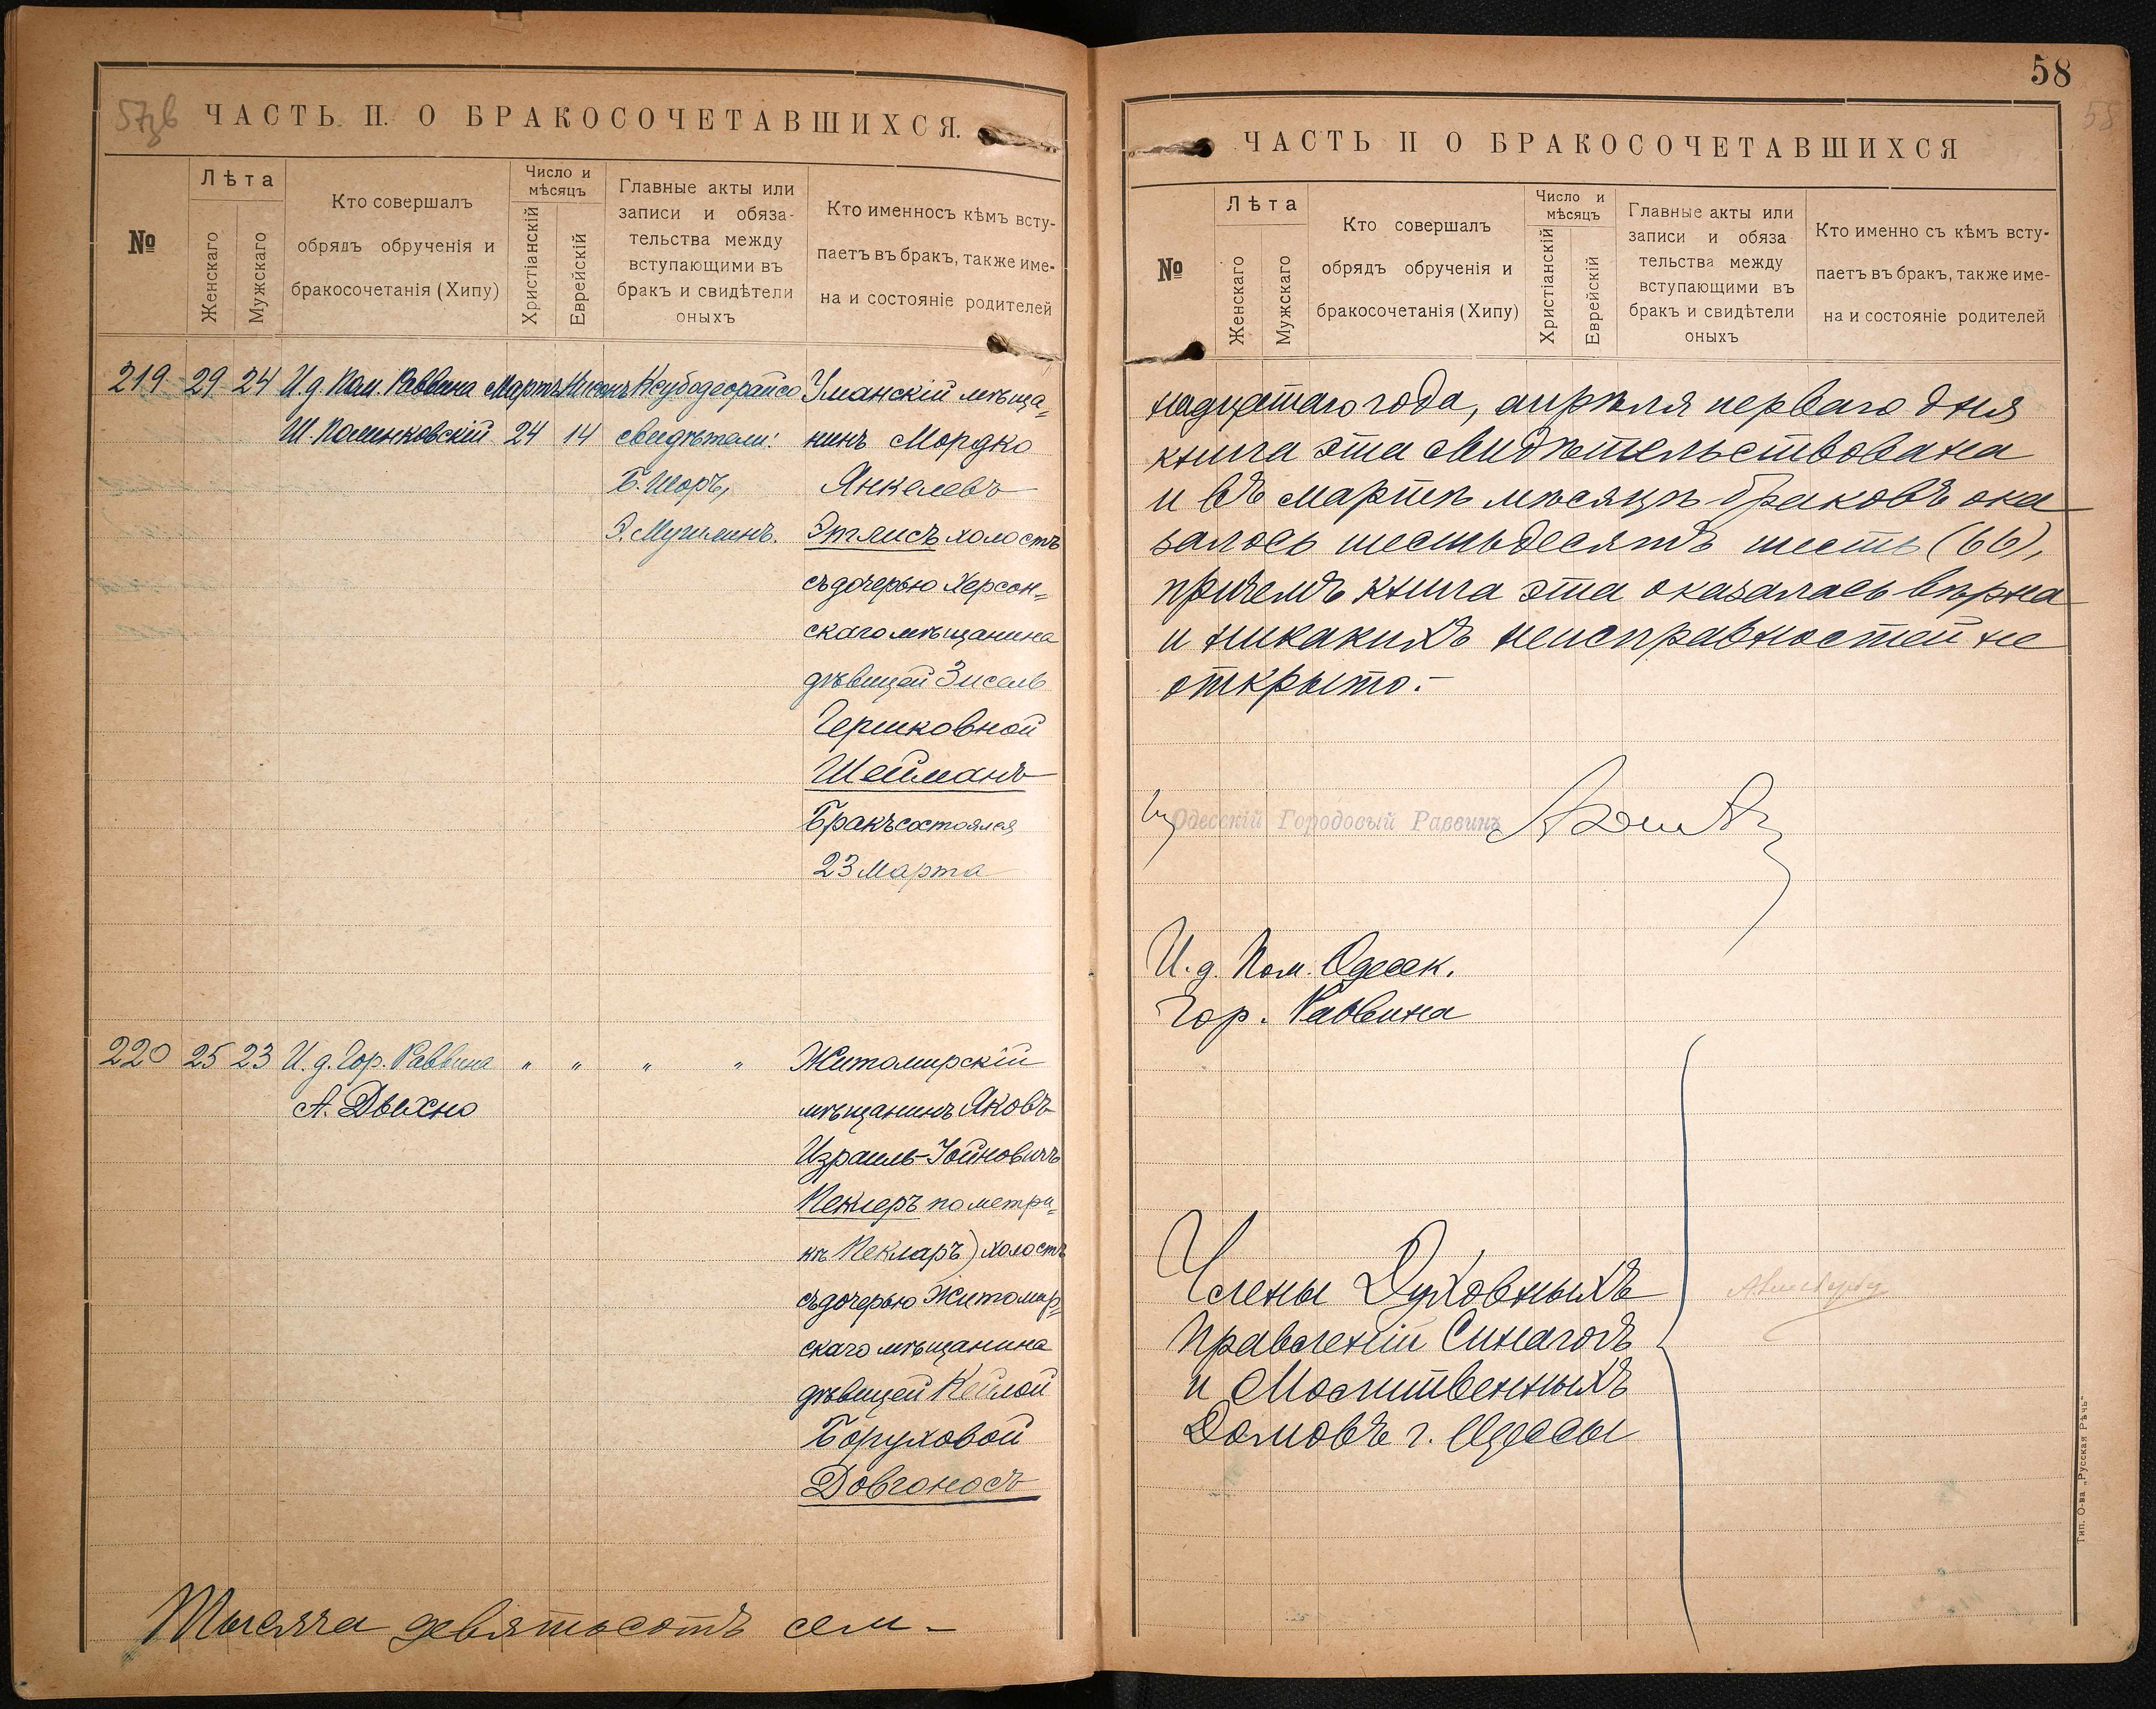 57зв
ЧАСТЬ II. О БРАКОСОЧЕТАВШИХСЯ.
№
Лѣта
Женскаго
Мужскаго
Кто совершалъ
обрядъ обрученія и
бракосочетанія (Хипу)
Число и
мѣсяцъ
Христіанскій
Еврейскій
Главные акты или
записи и обяза-
тельства между
вступающими въ
бракъ и свидѣтели
оныхъ
Кто именносъ кѣмъ всту-
паетъ въ бракъ, также име-
на и состояніе родителей
219 29 24 И. д. Пом. Раввина Мартъ Нисонъ Ксубодеорайсо Уманскій мѣща=
Ш. Полинковскій 24 14 свидѣтели: нинъ Мордко
Б. Шоръ, Янкелевъ
Э. Мучникъ. Этлисъ холостъ
съ дочерью Херсон=
скаго мѣщанина
дѣвицей Зисель
Гершковной
Шейманъ
Бракъ состоялся
23 Марта
220 25 23 И. д. Гор. Раввина " " " " Житомирскій
А. Дыхно мѣщанинъ Яковъ
Израиль-Іойновичъ
Пекнеръ по метри=
кѣ Пекларъ) холостъ
съ дочерью Житомир=
скаго мѣщанина
дѣвицей Кейлой
Боруховой
Довгоносъ
Тысяча девятьсотъ сем-
58
58
ЧАСТЬ II О БРАКОСОЧЕТАВШИХСЯ
№
Лѣта
Женскаго
Мужскаго
Кто совершалъ
обрядъ обрученія и
бракосочетанія (Хипу)
Число и
мѣсяцъ
Христіанскій
Еврейскій
Главные акты или
записи и обяза
тельства между
вступающими въ
бракъ и свидѣтели
оныхъ
Кто именно съ кѣмъ всту-
паетъ въ бракъ, также име-
на и состояніе родителей
надцатаго года, апрѣля перваго дня
книга эта свидѣтельствована
и въ мартѣ мѣсяцѣ браковъ ока
залось шестьдесятъ шесть (66),
причемъ книга эта оказалась вѣрна
и никакихъ неисправностей не
открыто.-
Одесскій Городовый Раввинъ
И. д. Пом. Одесск.
Гор. Раввина
Члены Духовныхъ
Правленій Синагогъ
и Молитвенныхъ
Домовъ г. Одессы
Тип. О-ва „Русская Рѣчь"